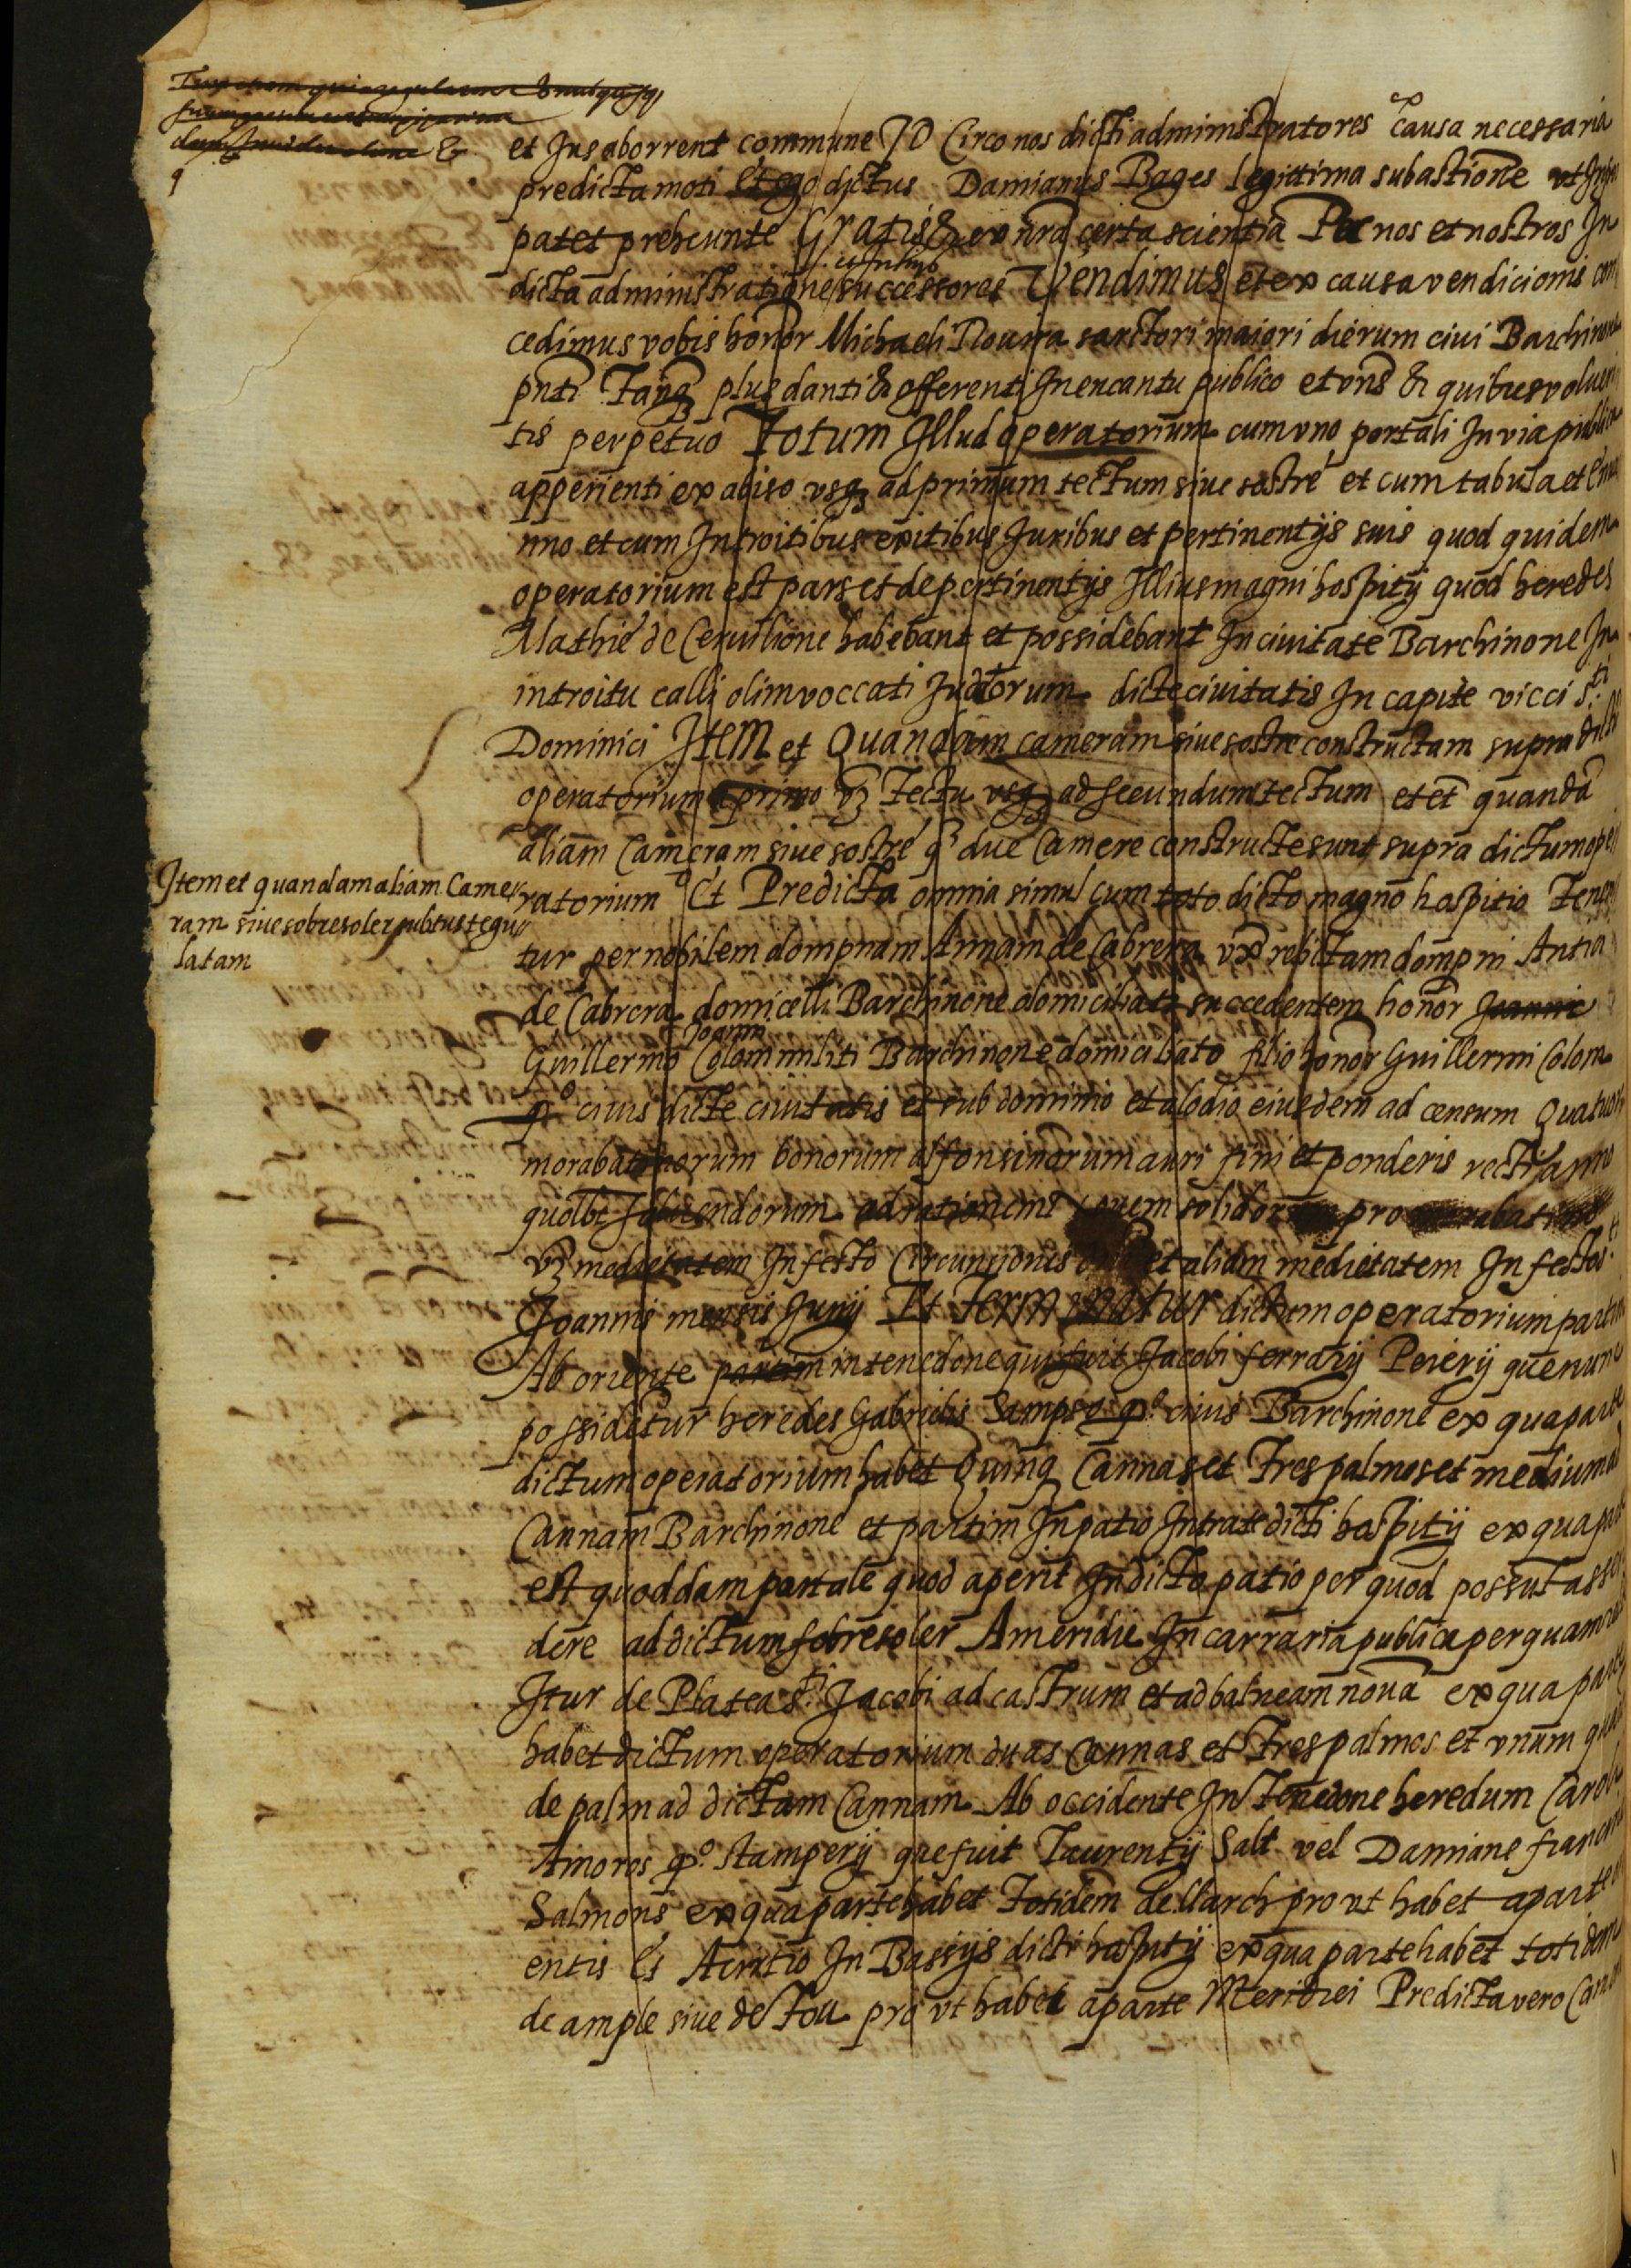 et Jus aborrent commune ID Circo nos dicti administratores ex causa necessaria
predicta moti et ego dictus Damianus Bages legittima subastione vt
patet preheunte Gratis & ex nra certa scientia Per nos et nostros In
dicta administratione successores Vendimus et ex causa vendicionis con
cedimus vobis honor Michaeli Rovira sartori maiori dierum civi Barchinone
pnti Tanq plus danti & offerenti In encantu publico et vris & quibus volueri
tis perpetuo Totum Illud operatorium cum vno portali In via publica
apperienti ex abiso vsq ad primum tectum siue sostre et cum tabula et
nno et cum Introitibus exitibus Juribus et pertinentijs suis quod quidem
operatorium est pars et de pertinentijs Illius magni hospitij quod heredes
Mathie de Ceruilione habebant et possidebant In ciuitate Barchinone In
introitu calli olim voccati Judeorum dicte ciuitatis In capite vicci Sti
Dominici Item et Quandam cameram siue sostre constructam supra dictu
operatorium a primo vz Tectu vsq ad secundum tectum et et quanda
aliam Cameram siue sostre q due Camere constructe sunt supra dictum ope
Item et quandam aliam Came
ram siue sobresoler subtus tegu
latam
ratorium Et Predicta omnia simul cum toto dicto magno hospitio Tenen
tur per nobilem dompnam Annam de Cabrera vx relictam dompni
de Cabrera domicelli Barchinone domiciliati succedentem honor Joanni
Joann
Guillermo Colom militi Barchinone domiciliato filio honor Guillermi Colom
qo ciuis dicte ciuitatis et sub dominio et alodio eiusdem ad censum Quatuor
morabatinorum bonorum alfonsinorum auri fini et ponderis recti anno
quolbt soluendorum ad rationem nouem solidorum pro
vz medietatem In festo Circuncionis et aliam medietatem In festo Sti
Joannis mensis Junij Et Terminatur dictum operatorium partim
Ab oriente partim in tenedone qui fuit Jacobi ferrarij que nunc
possidetur heredes Gabrielis Sampso qo ciuis Barchinone ex qua parte
dictum operatorium habet Quinq Cannas et Tres palmos et medium ad
Cannam Barchinone et partim In patio Intrate dicti hospitij ex qua parte
est quoddam portale quod aperit In dicto patio per quod possut assen
dere ad dictum sobresoler A meridie In carraria publica per quam
Itur de Platea Sti Jacobi ad castrum et ad balneam noua ex qua parte
habet dictum operatorium duas Cannas et Tres palmos et vnum quar
de palm ad dictam Cannam Ab occidente In Tenedone heredum
Amoros qo stamperij que fuit Laurentij Salt vel Damiane
Salmons ex qua parte habet Totidem de llarch pro vt habet a parte
entis Et A circio In Bassijs dicti hospitij ex qua parte habet totidem
de ample siue de Tou pro vt habet a parte Meridiei Predicta vero